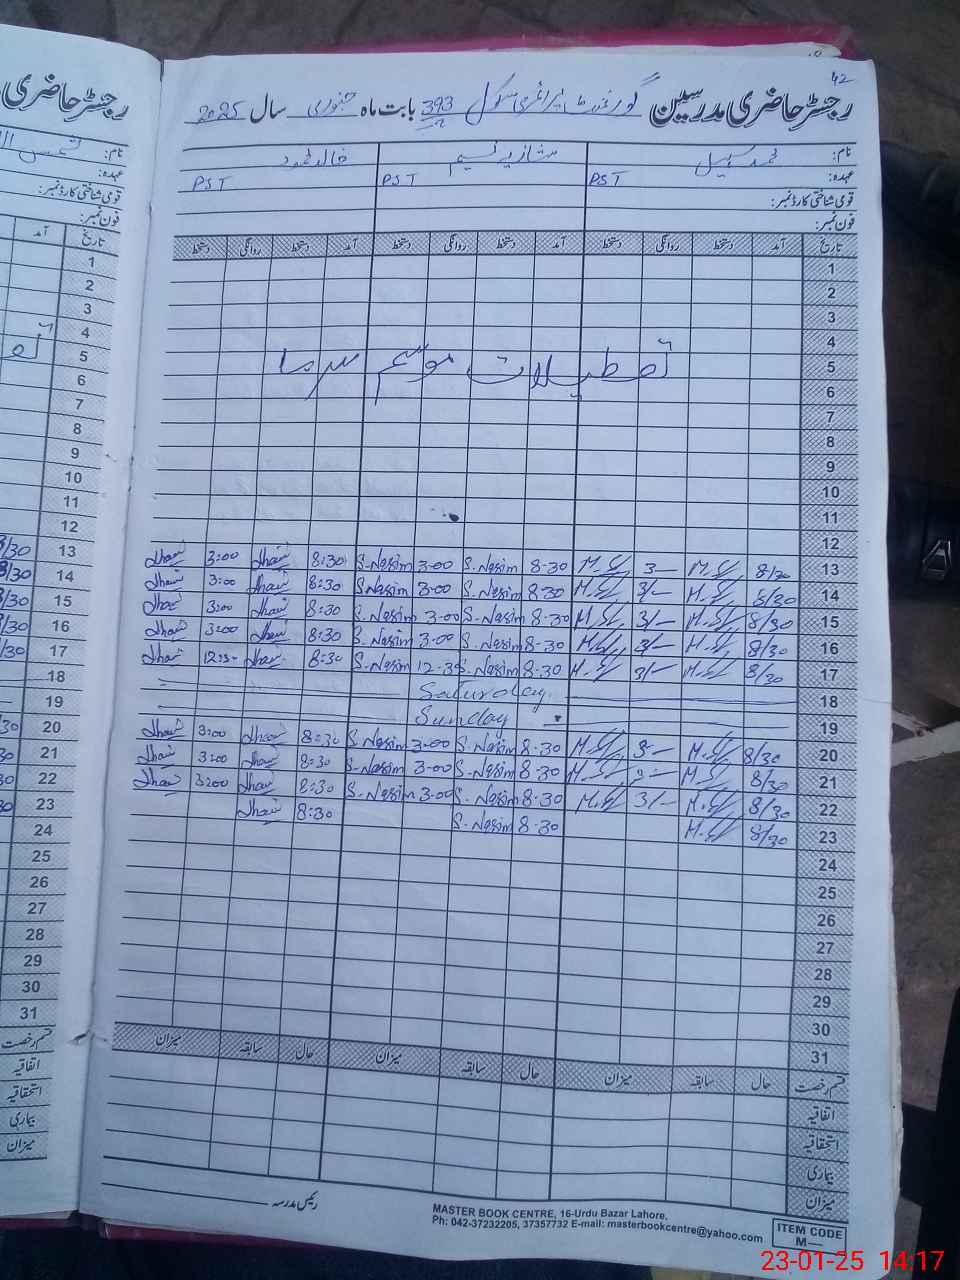 42
رجسٹر حاضری مدرسین گورنمنٹ پرائمری سکول 393 بابت ماہ جنوری سال 2025
نام: محمد سہیل شازیہ نسیم خالد محمود
عہدہ: PST PST PST
قومی شناختی کارڈ نمبر:
فون نمبر:
تاریخ آمد دستخط روانگی دستخط آمد دستخط روانگی دستخط آمد دستخط روانگی دستخط
1
2
3
4
5
تعطیلات موسم سرما
6
7
8
9
10
11
12
13 8/30 3- S.Nasim 8-30 S.Nasim 3-00 8:30 3:00
14 8/30 3/- S.Nasim 8-30 S.Nasim 3-00 8:30 3:00
15 8/30 3/- S.Nasim 8-30 S.Nasim 3-00 8:30 3:00
16 8/30 3/- S.Nasim 8-30 S.Nasim 3-00 8:30 3:00
17 8/30 3/- S.Nasim 8-30 S.Nasim 12-30 8:30
18 Saturday
19 Sunday
20 8/30 S.Nasim 8-30 S.Nasim 3-00 8:30 3:00
21 8/30 S.Nasim 8-30 S.Nasim 3-00 8:30 3:00
22 8/30 3/- S.Nasim 8-30 S.Nasim 3-00 8:30 3:00
23 8/30 S.Nasim 8-30 8:30
24
25
26
27
28
29
30
31
قسم رخصت حال سابقہ میزان حال سابقہ میزان حال سابقہ میزان
اتفاقیہ
استحقاقیہ
بیماری
میزان
رئیس مدرسہ
MASTER BOOK CENTRE, 16-Urdu Bazar Lahore,
Ph: 042-37232205, 37357732 E-mail: masterbookcentre@yahoo.com
ITEM CODE
M—
رجسٹر حاضری
نام:
عہدہ:
قومی شناختی کارڈ نمبر:
فون نمبر:
تاریخ آمد
1
2
3
4
5
6
7
8
9
10
11
12
13 8/30
14 8/30
15 8/30
16 8/30
17 8/30
18
19
20
21
22
23
24
25
26
27
28
29
30
31
قسم رخصت
اتفاقیہ
استحقاقیہ
بیماری
میزان
23-01-25 14:17